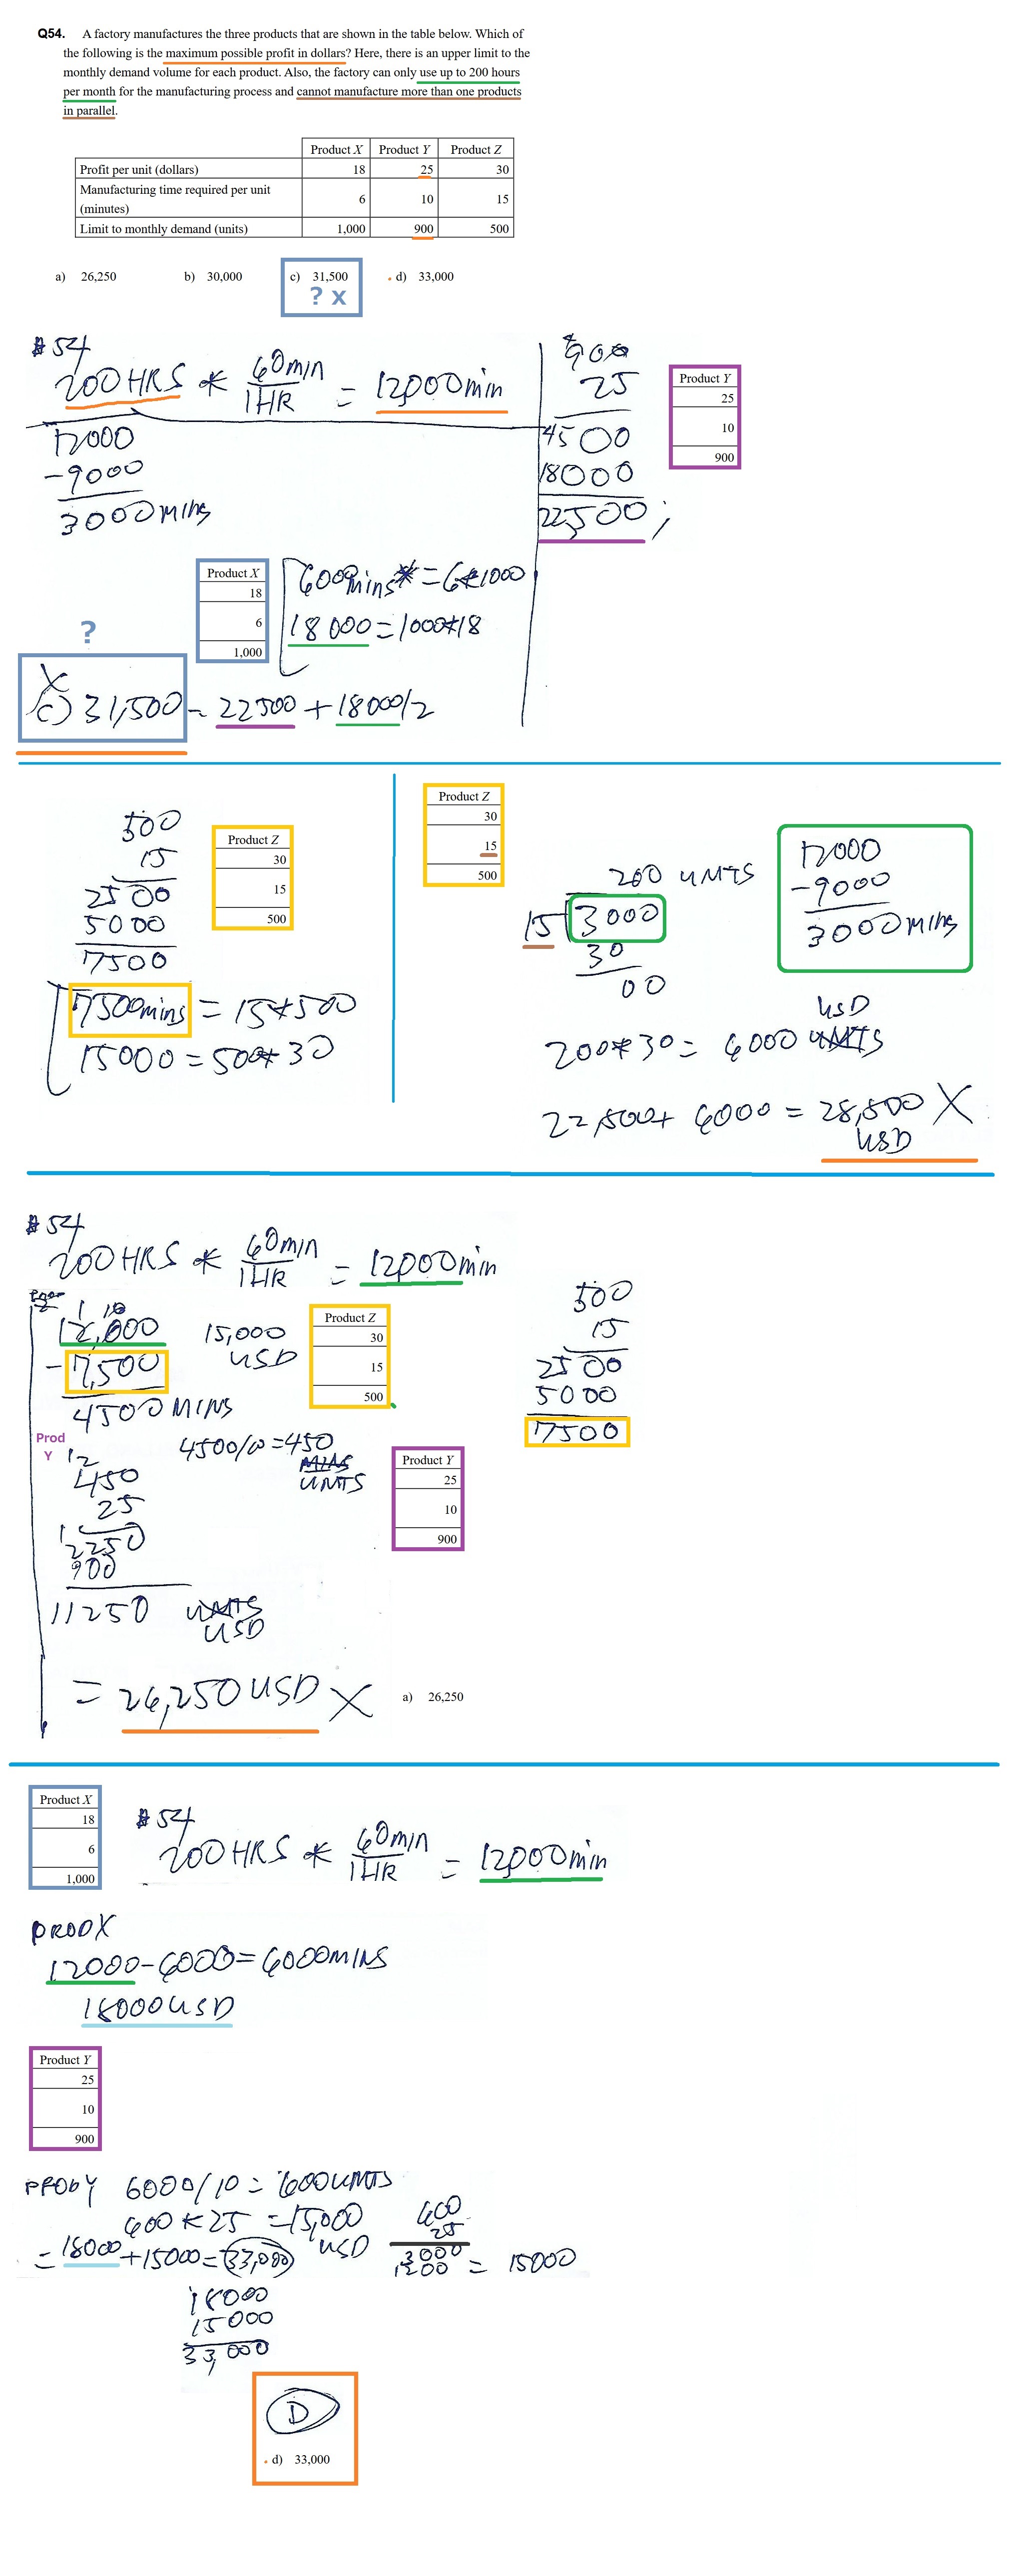 Q54. A factory manufactures the three products that are shown in the table below. Which of
the following is the maximum possible profit in dollars? Here, there is an upper limit to the
monthly demand volume for each product. Also, the factory can only use up to 200 hours
per month for the manufacturing process and cannot manufacture more than one products
in parallel.
Product X Product Y Product Z
Profit per unit (dollars) 18 25 30
Manufacturing time required per unit
(minutes) 6 10 15
Limit to monthly demand (units) 1,000 900 500
a) 26,250 b) 30,000 c) 31,500 d) 33,000
? x
#54
200 HRS * 60min/1HR = 12,000min
12000
-9000
3000 mins
900
25
4500
18000
22,500;
Product Y
25
10
900
Product X
18
6
1,000
6000 mins = 6*1000
18000 = 1000*18
?
X
c) 31,500 = 22500 + 18000/2
500
15
2500
5000
7500
Product Z
30
15
500
7500mins = 15*500
15000 = 500*30
Product Z
30
15
500
200 UNITS
15 3000
30
00
12000
-9000
3000 mins
USD
200*30 = 6000 UNITS
22,500+ 6000 = 28,500 X
USD
#54
200 HRS * 60min/1HR = 12,000min
12,000
-7,500
4500 MINS
15,000
USD
Product Z
30
15
500
500
15
2500
5000
7500
4500/10 = 450
MINS
UNITS
Prod
Y
450
25
2250
900
11250 UNITS
USD
Product Y
25
10
900
= 26,250 USD X
a) 26,250
Product X
18
6
1,000
#54
200 HRS * 60min/1HR = 12,000min
PROD X
12000-6000 = 6000MINS
18000 USD
Product Y
25
10
900
PROD Y 6000/10 = 600 UNITS
600 * 25 = 15,000
USD
600
25
3000
1200 = 15000
= 18000 + 15000 = 33,000
18000
15000
33,000
D
d) 33,000